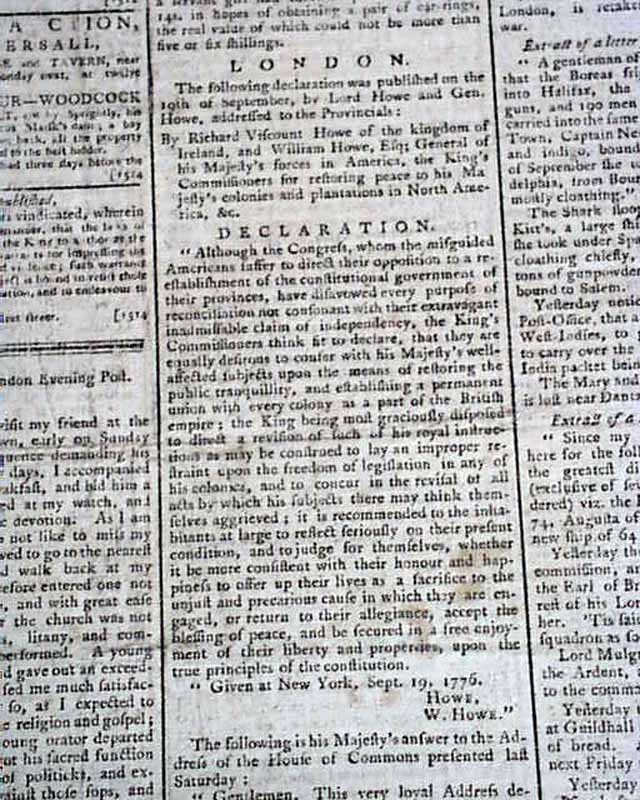 A C T I O N,
ERSALL,
E and TAVERN, near
onday next, at twelve
UR—WOODCOCK
by Sprightly, his
dam; a bay
all the property
to the best bidder.
had three days before the
[1514
published,
is vindicated, wherein
the laws of
the King to
for impressing
such warrants
and to endeavour to
street.
[1514
ndon Evening Post.
visit my friend at the
wn, early on Sunday
quence demanding his
days, I accompanied
eakfast, and bid him a
ed at my watch, and
e devotion. As I am
o not like to miss my
ved to go to the nearest
d walk back at my
refore entered one not
, and with great ease
r the church was not
s, litany, and com-
performed. A young
d gave out an exceed-
sed me much satisfac-
so, as I expected to
e religion and gospel;
oung orator departed
ot his sacred function
of politicks, and ex-
ainst those fops, and
14l. in hopes of obtaining a pair of ear-rings,
the real value of which could not be more than
five or six shillings.
L O N D O N.
The following declaration was published on the
19th of September, by Lord Howe and Gen.
Howe, addressed to the Provincials:
By Richard Viscount Howe of the kingdom of
Ireland, and William Howe, Esq; General of
his Majesty's forces in America, the King's
Commissioners for restoring peace to his Ma
jesty's colonies and plantations in North Ame-
rica, &c.
D E C L A R A T I O N.
“Although the Congress, whom the misguided
Americans suffer to direct their opposition to a re-
establishment of the constitutional government of
their provinces, have disavowed every purpose of
reconciliation not consonant with their extravagant
inadmissable claim of independency, the King's
Commissioners think fit to declare, that they are
equally desirous to confer with his Majesty's well-
affected subjects upon the means of restoring the
public tranquillity, and establishing a permanent
union with every colony as a part of the British
empire; the King being most graciously disposed
to direct a revision of such of his royal instruc-
tions as may be construed to lay an improper re-
straint upon the freedom of legislation in any of
his colonies, and to concur in the revisal of all
acts by which his subjects there may think them-
selves aggrieved; it is recommended to the inha-
bitants at large to reflect seriously on their present
condition, and to judge for themselves, whether
it be more consistent with their honour and hap-
piness to offer up their lives as a sacrifice to the
unjust and precarious cause in which they are en-
gaged, or return to their allegiance, accept the
blessing of peace, and be secured in a free enjoy-
ment of their liberty and properties, upon the
true principles of the constitution.
“ Given at New York, Sept. 19, 1776.
HOWE,
W. HOWE.”
The following is his Majesty's answer to the Ad-
dress of the House of Commons presented last
Saturday:
“ Gentlemen, This very loyal Address de-
London, is retak
war.
Extract of a letter
“ A gentleman of
that the Boreas fri
into Halifax, the
guns, and 190 men
carried into the same
Town, Captain Ne
and indigo, bound
of September the
delphia, from Bour
mostly cloathing.”
The Shark sloop
Kitt's, a large shi
she took under Sp
cloathing chiefly,
tons of gunpowder
bound to Salem.
Yesterday notice
Post-Office, that a
West-Indies, to
to carry over the
India packet being
The Mary and
is lost near Dant
Extract of a
“ Since my
here for the foll
the greatest di
(exclusive of sev
dered) viz. the
74, Augusta of
new ship of 64
Yesterday the
commission, an
the Earl of B
rest of his Lo
her. 'Tis said
squadron as so
Lord Mulgr
the Ardent,
to the comm
Yesterday
at Guildhall
of bread.
next Friday
Yesterday